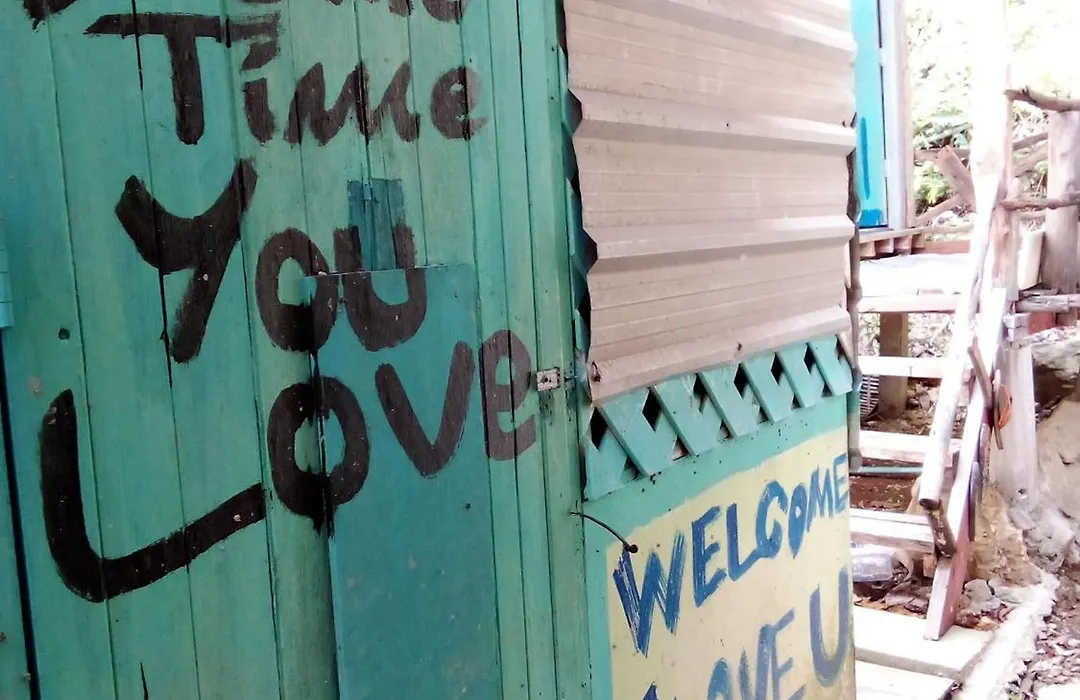 Time
YOU
LOVe
WELCOME
LOVE U